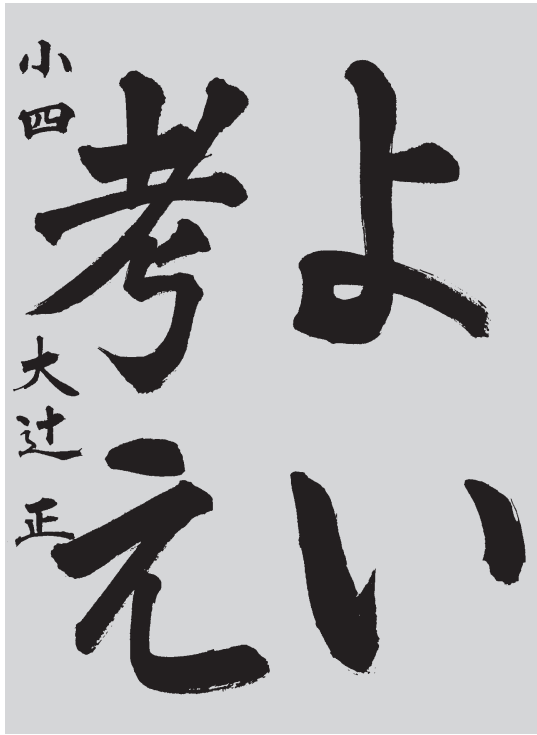 よい
考え
小四 大辻 正